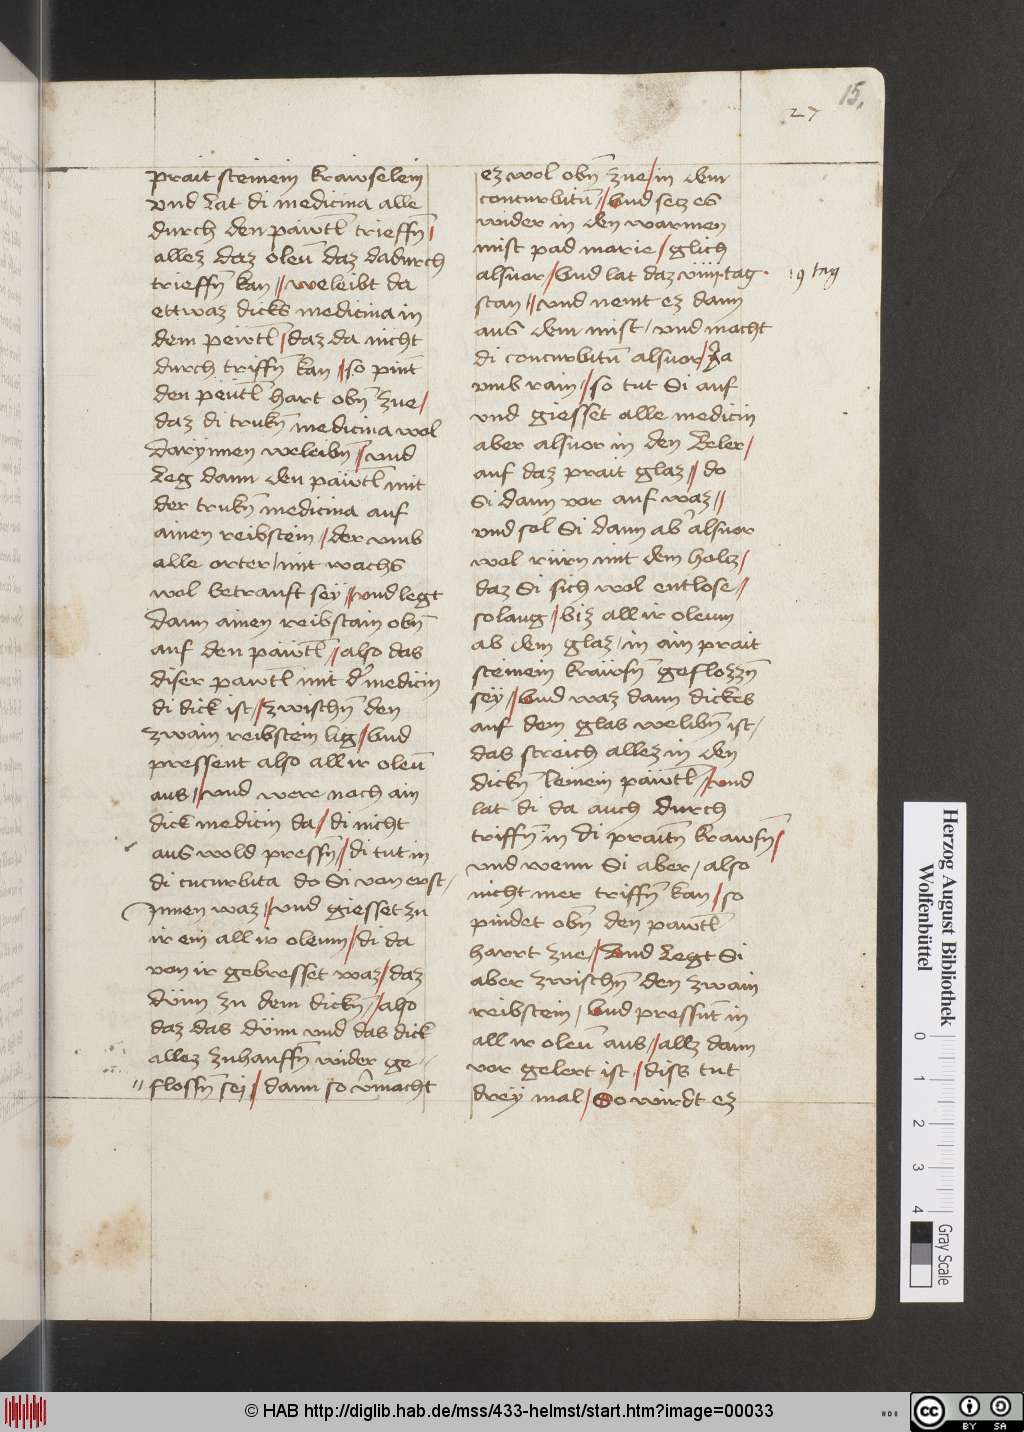 15.
27
prait steinein krawselein
vnd Lat di medicina alle
durch den päwtl trieffn̄
allez daz oleū daz dadurch
trieffn̄ kan // weleibt da
ettwaz dicks medicina in
dem pewtl / daz da nicht
durch triffn̄ kan // so pint
den peutl hart obn̄ zue /
daz di trukn̄ medicina wol
darynnen weleibn̄ // vnd
Leg dann den päwtl mit
der trukn̄ medicina auf
ainen reibstein / der vmb
alle orter / mit wachs
wol betrauft seÿ // vnd legt
dann ainen reibstain obn̄
auf den päwtl / also das
diser pawtl mit d' medicin
di dick ist / zwischn̄ den
zwain reibstein lig / vnd
pressent also all ir oleū
aus / vnd wer noch ain
dick medicin da / di nicht
aus wold pressn̄ / di tut in
di cucurbita do Si von erst /
ynnen waz / vnd giesset zu
ir ein all ir oleum / di da
von ir gebresset waz / daz
dünn zu dem dickn̄ / also
daz das dünn vnd das dick
allez zuhauffn̄ wider ge-
flossn̄ sei / dann so v̂macht
ez wol obn̄ zue / in dem
concurbitū // vnd secz es
wider in den warmen
mist pad marie / glich
alsuor / vnd lat daz viiij tag
9 tag
stan // vnd nemt ez dann
aus dem mist / vnd macht
di concurbitū alsuor / Ja
vmb rain / so tut Si auf
vnd giesset alle medicin
aber alsuor in den Leler /
auf daz prait glaz // do
Si dann vor auf waz //
vnd sol Si dann ab' alsuor
wol rürn mit dem holcz /
daz Si sich wol entlose /
solang / biz all ir oleum
ab dem glaz / in ain prait
steinein kräwsn̄ geflozzn̄
seÿ // vnd waz dann dickes
auf dem glas welibn̄ ist /
das streich allez in den
dickn̄ leinein päwtl / vnd
lat di da auch durch
triffn̄ in di praitn̄ krawsn̄ /
vnd wenn Si aber / also
nicht mer triffn̄ kan / so
pindet obn̄ den pawtl
harrt zue / vnd Legt Si
aber zwischn̄ den zwain
reibstein / vnd pressnt in
all ir oleū aus / allz dann
vor gelert ist / diss tut
dreÿ mal / So wirdt ez
Herzog August Bibliothek
Wolfenbüttel
0
1
2
3
4
Gray Scale
© HAB http://diglib.hab.de/mss/433-helmst/start.htm?image=00033
cc BY SA